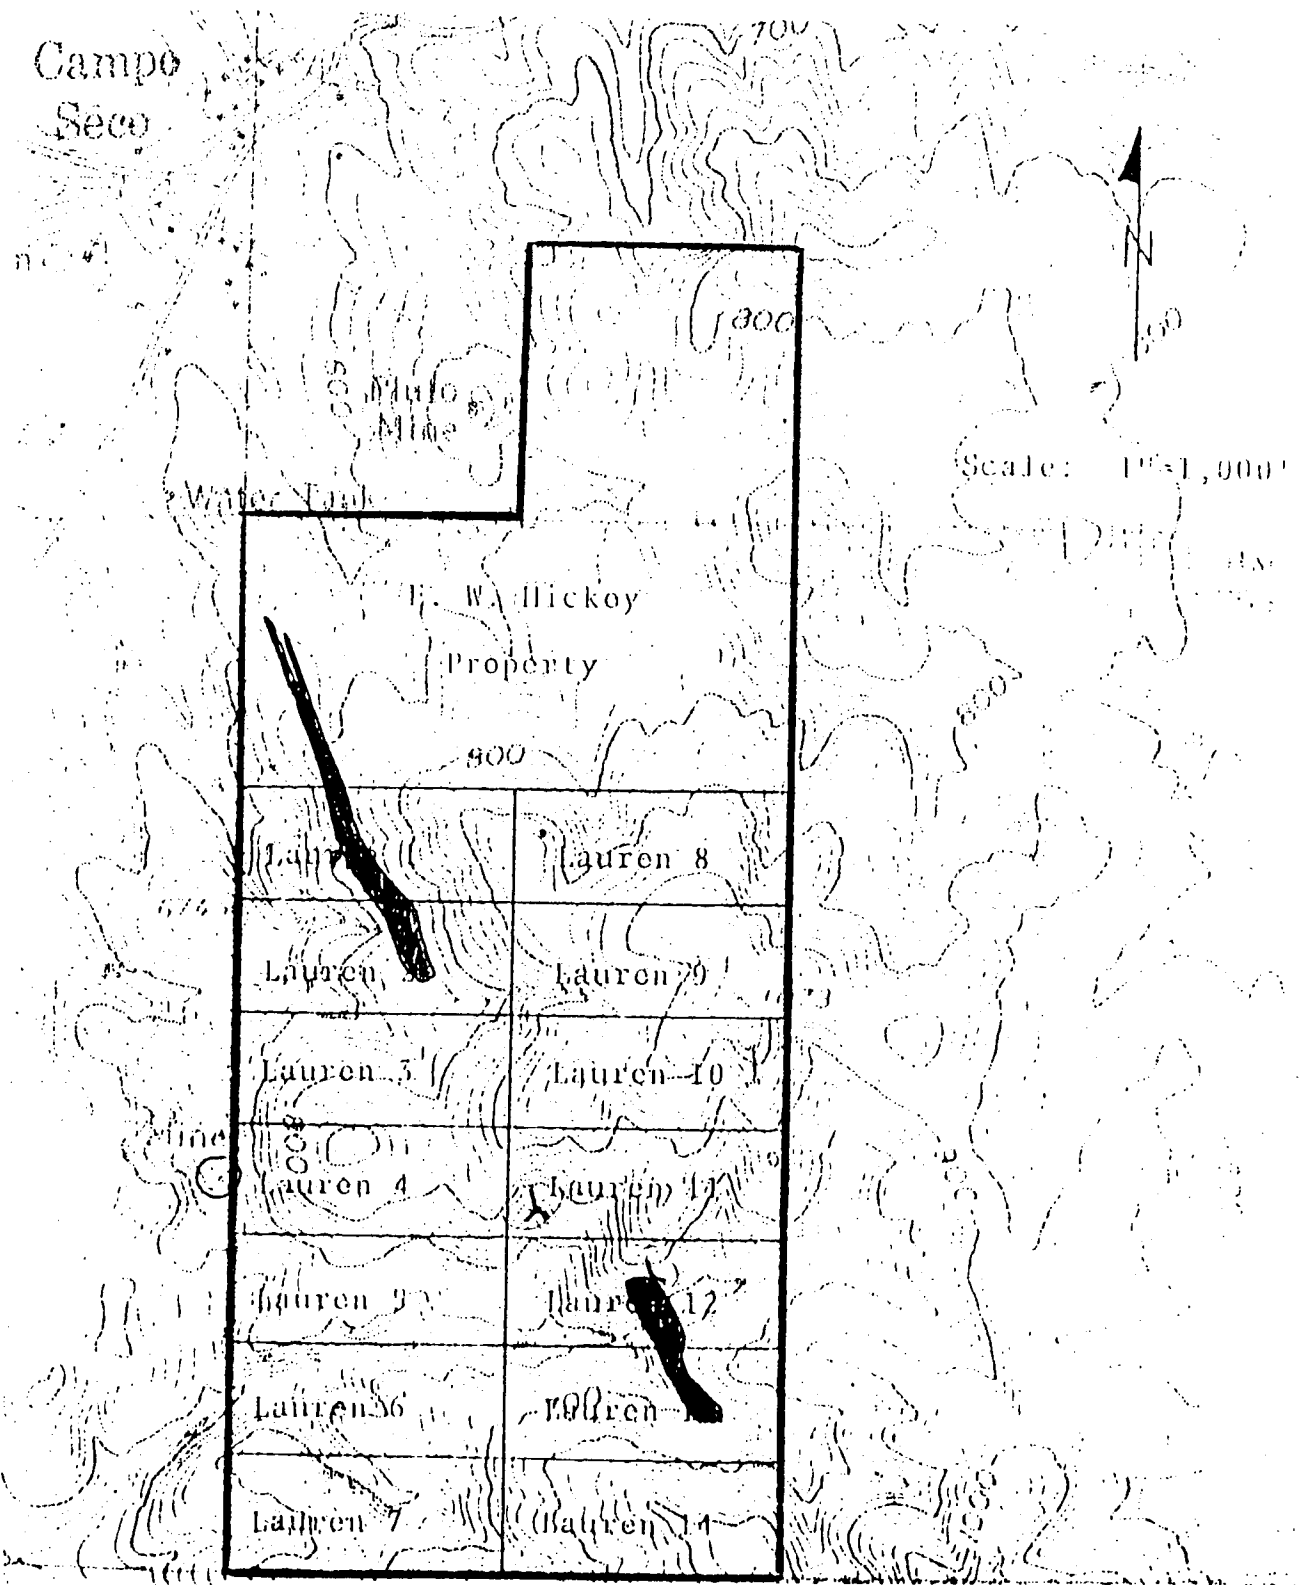 700
Campo
Seco
N
800
600
Mine
Scale: 1"=1,000'
Water Tank
W. Hickey
Property
800
800
Lauren
Lauren 8
Lauren
Lauren 9
Lauren 3
Lauren 10
Mine
800
Lauren 4
Lauren 11
Lauren 5
Lauren 12
Lauren 6
Lauren
700
Lauren 7
Lauren 14